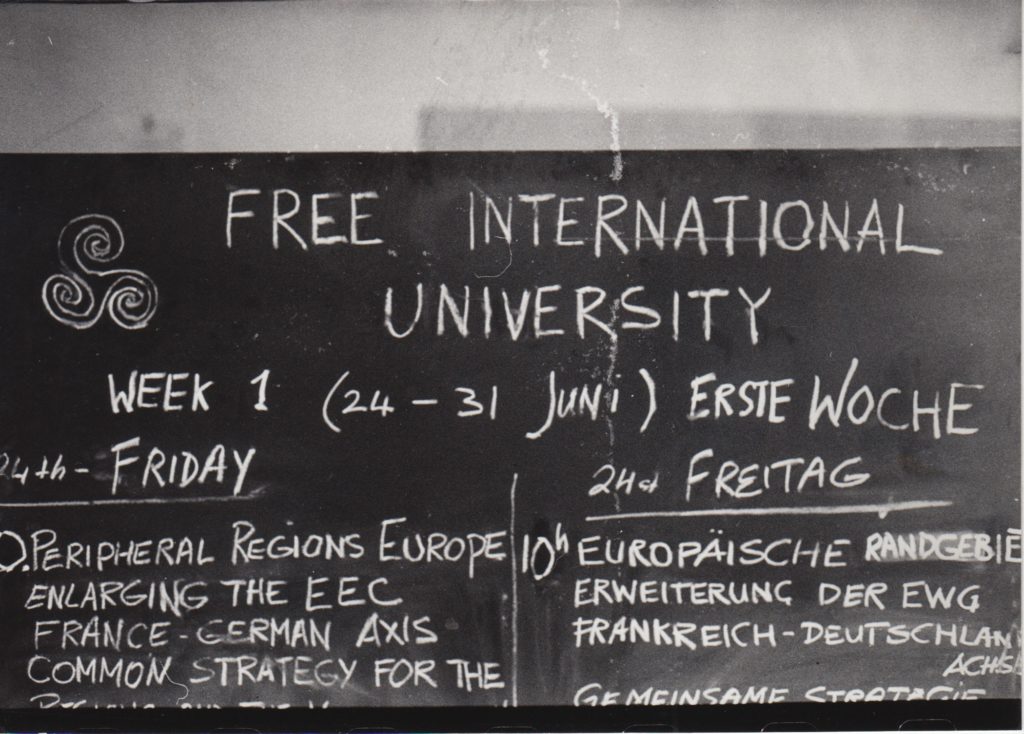 FREE INTERNATIONAL
UNIVERSITY
WEEK 1 (24 - 31 Juni) ERSTE WOCHE
24th - FRIDAY
PERIPHERAL REGIONS EUROPE
ENLARGING THE EEC
FRANCE - GERMAN AXIS
COMMON STRATEGY FOR THE
24d FREITAG
10h EUROPÄISCHE RANDGEBIE
ERWEITERUNG DER EWG
FRANKREICH - DEUTSCHLAN
ACHSE
GEMEINSAME STRATEGIE